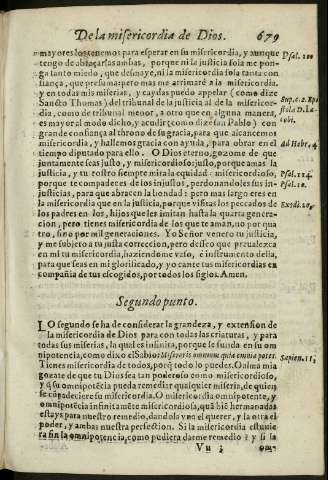 De la misericordia de Dios. 679
mayores los tenemos para esperar en su misericordia, y aunque
tengo de abraçarlas ambas, porque ni la justicia sola me pon-
ga tanto miedo, que desmaye, ni la misericordia sola tanta con
fiança, que presuma; pero mas me arrimaré a la misericordia.
y en todas mis miserias, y caydas puedo appelar (como dize
Sancto Thomas) del tribunal de la justicia al de la misericor-
dia, como de tribunal menor, a otro que en alguna manera,
es mayor (al modo dicho, y acudir (como dize san Pablo) con
grande confiança al throno de su gracia, para que alcancemos
misericordia, y hallemos gracia con ayuda, para obrar en el
tiempo diputado para ello. O Dios eterno, gozome de que
juntamente seas justo, y misericordioso: justo, porque amas la
justicia, y tu rostro siempre mira la equidad: misericordioso,
porque te compadeces de los injustos, perdonandoles sus in-
justicias, para que abracen la bondad: pero mas largo eres en
la misericordia que en la justicia, porque visitas los peccados de
los padres en los, hijos que les imitan hasta la quarta genera-
cion, pero tienes misericordia de los que te aman, no por qua
tro, sino por mil generaciones. Yo Señor venero tu justicia,
y me subjeto a tu justa correccion, pero desseo que preualezca
en mi tu misericordia, haziendome vaso, è instrumento della,
para que seas en mi glorificado, y yo cante tus misericordias en
compañia de tus escogidos, por todos los siglos. Amen.
Psal. 100
Sup. c. 2. Epi
stola D. Ia-
cobi.
Ad Hebr. 4
Psal. 114.
Psal. 10.
Exod. 20.
Segundo punto.
LO segundo se ha de considerar la grandeza, y extension de
la misericordia de Dios para con todas las criaturas, y para
todas sus miserias, la qual es infinita, porque se funda en su om
nipotencia, como dixo el Sabio: Misereris omnium quia omnia potes.
Tienes misericordia de todos, porq̃ todo lo puedes. O alma mia
gozate de que Dios sea tan poderoso como misericordioso,
y q̃ su omnipotẽcia pueda remediar qualquier miseria, de quien
se cõpadeciere su misericordia. O misericordia omnipotente, y
omnipotẽcia infinitamẽte misericordiosa, quã biẽ hermanadas
estays para nuestro remedio, dandola vna el querer, y la otra el
poder, y ambas nuestra perfection. Si la misericordia estuuie
ra sin la omnipotencia, como pudiera darme remedio? y si la
Sapien. 11.
Vu 2 om-